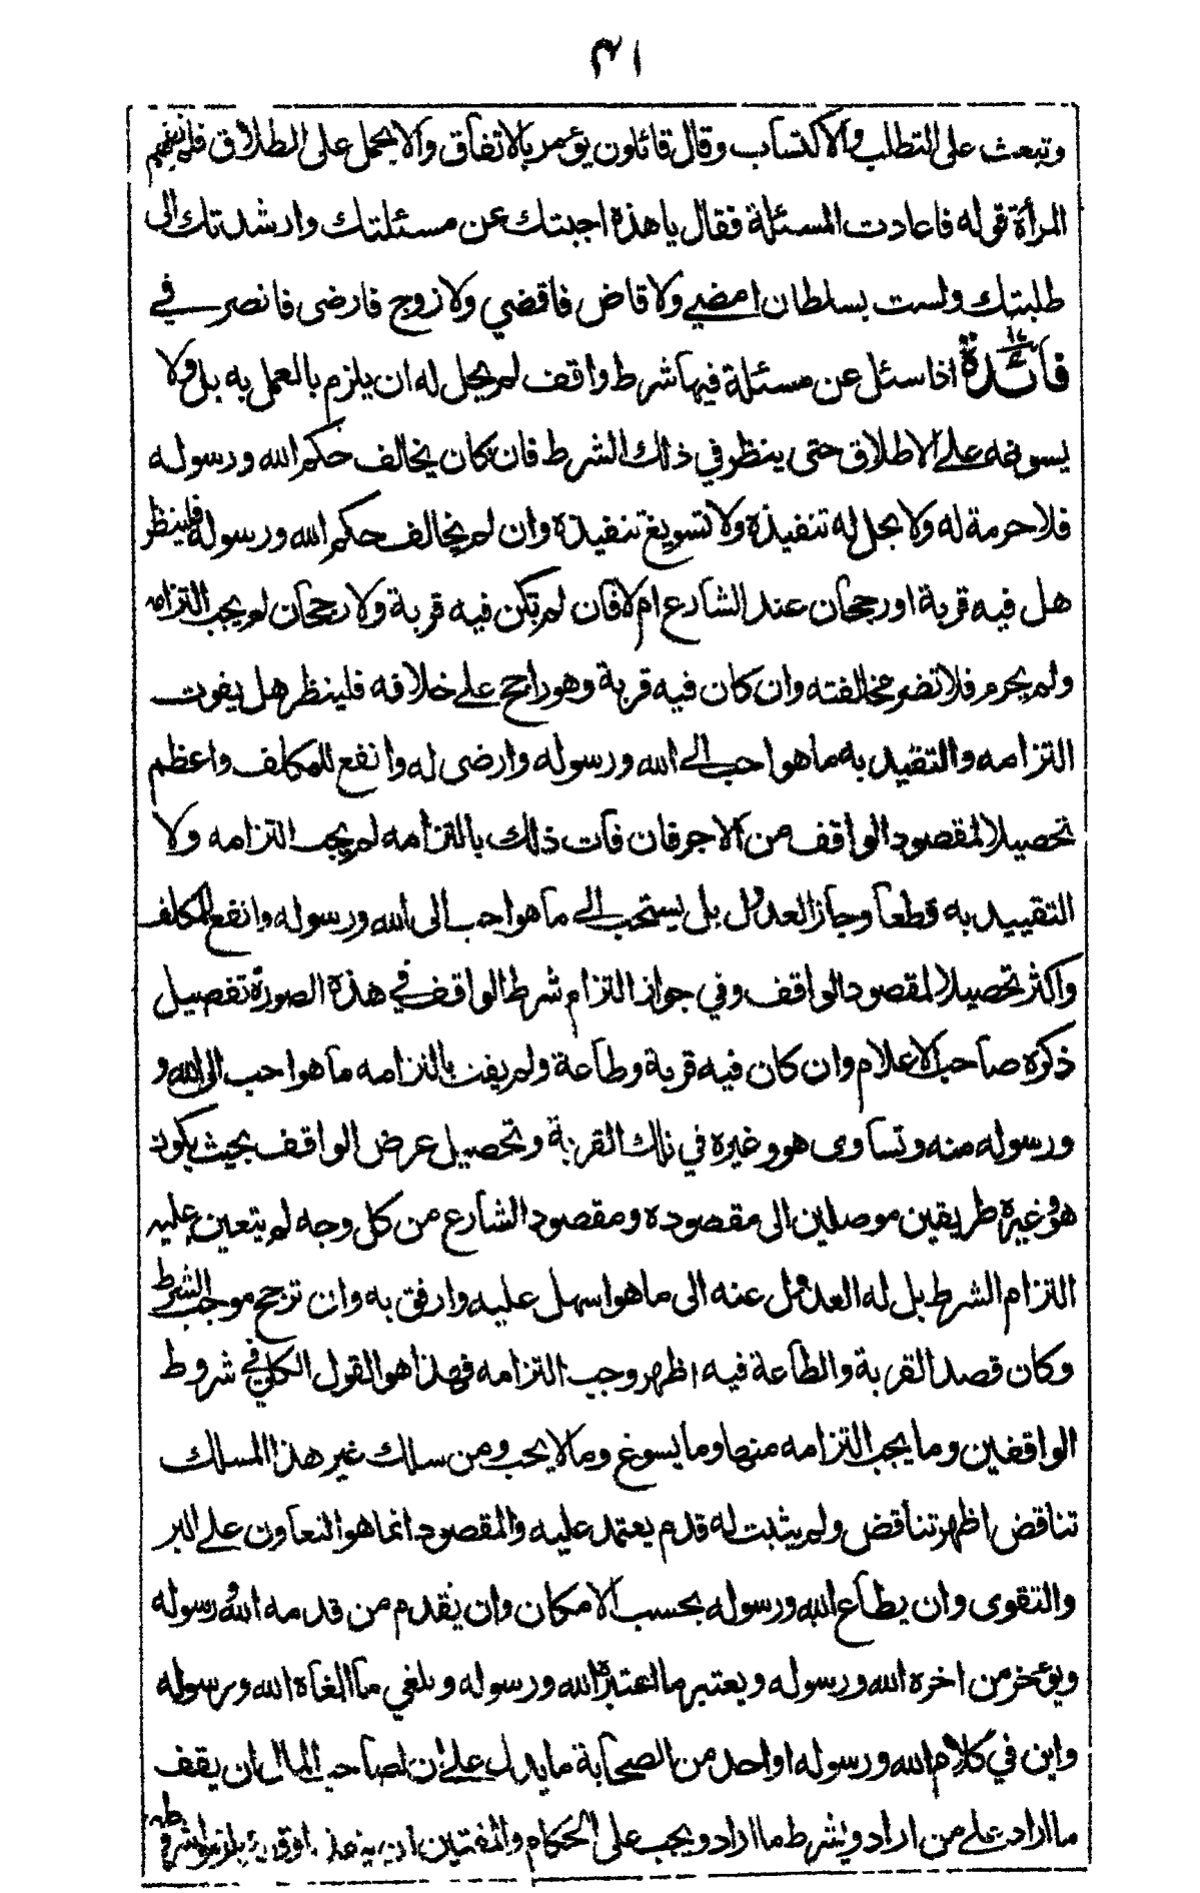 ٣١
وتبعث على التطلب والاكتساب وقال قائلون يؤمر بالاتفاق والا يحمل على الطلاق فلم تفهم
المرأة قوله فاعادت المسئلة فقال يا هذه اجبتك عن مسئلتك وارشدتك الى
طلبتك ولست بسلطان امضي ولا قاض فاقضي ولا زوج فارضى فانصرفي
فائدة اذا سئل عن مسئلة فيها شرط واقف لم يحل له ان يلزم بالعمل به بل ولا
يسوغه على الاطلاق حتى ينظر في ذلك الشرط فان كان يخالف حكم الله ورسوله
فلا حرمة له ولا يحل له تنفيذه ولا تسويغ تنفيذه وان لم يخالف حكم الله ورسوله فلينظر
هل فيه قربة او رجحان عند الشارع ام لا فان لم تكن فيه قربة ولا رجحان لم يجب التزامه
ولم يحرم فلا تضر مخالفته وان كان فيه قربة وهو راجح على خلافه فلينظر هل يفوت
التزامه والتقيد به ما هو احب الى الله ورسوله وارضى له وانفع للمكلف واعظم
تحصيلا لمقصود الواقف من الاجر فان فات ذلك بالتزامه لم يجب التزامه ولا
التقييد به قطعا وجاز العدول بل يستحب الى ما هو احب الى الله ورسوله وانفع للمكلف
واكثر تحصيلا لمقصود الواقف وفي جواز التزام شرط الواقف في هذه الصورة تفصيل
ذكره صاحب الاعلام وان كان فيه قربة وطاعة ولم يفت بالتزامه ما هو احب الى الله و
ورسوله منه وتساوى هو وغيره في تلك القربة وتحصيل عرض الواقف بحيث يكون
هو وغيره طريقين موصلين الى مقصوده ومقصود الشارع من كل وجه لم يتعين عليه
التزام الشرط بل له العدول عنه الى ما هو اسهل عليه وارفق به وان ترجح موجب الشرط
وكان قصد القربة والطاعة فيه اظهر وجب التزامه فهذا هو القول الكلي في شروط
الواقفين وما يجب التزامه منها وما يسوغ وما لا يجب ومن سلك غير هذا المسلك
تناقض اظهر تناقض ولم يثبت له قدم يعتمد عليه والمقصود انما هو التعاون على البر
والتقوى وان يطاع الله ورسوله بحسب الامكان وان يقدم من قدمه الله ورسوله
ويؤخر من اخره الله ورسوله ويعتبر ما اعتبره الله ورسوله ويلغي ما الغاه الله ورسوله
واين في كلام الله ورسوله او احد من الصحابة ما يدل على ان لصاحب المال ان يقف
ما اراد على من اراد ويشرط ما اراد ويجب على الحكام والمفتين ان ينفذوا وقفه ويلزموا شروطه